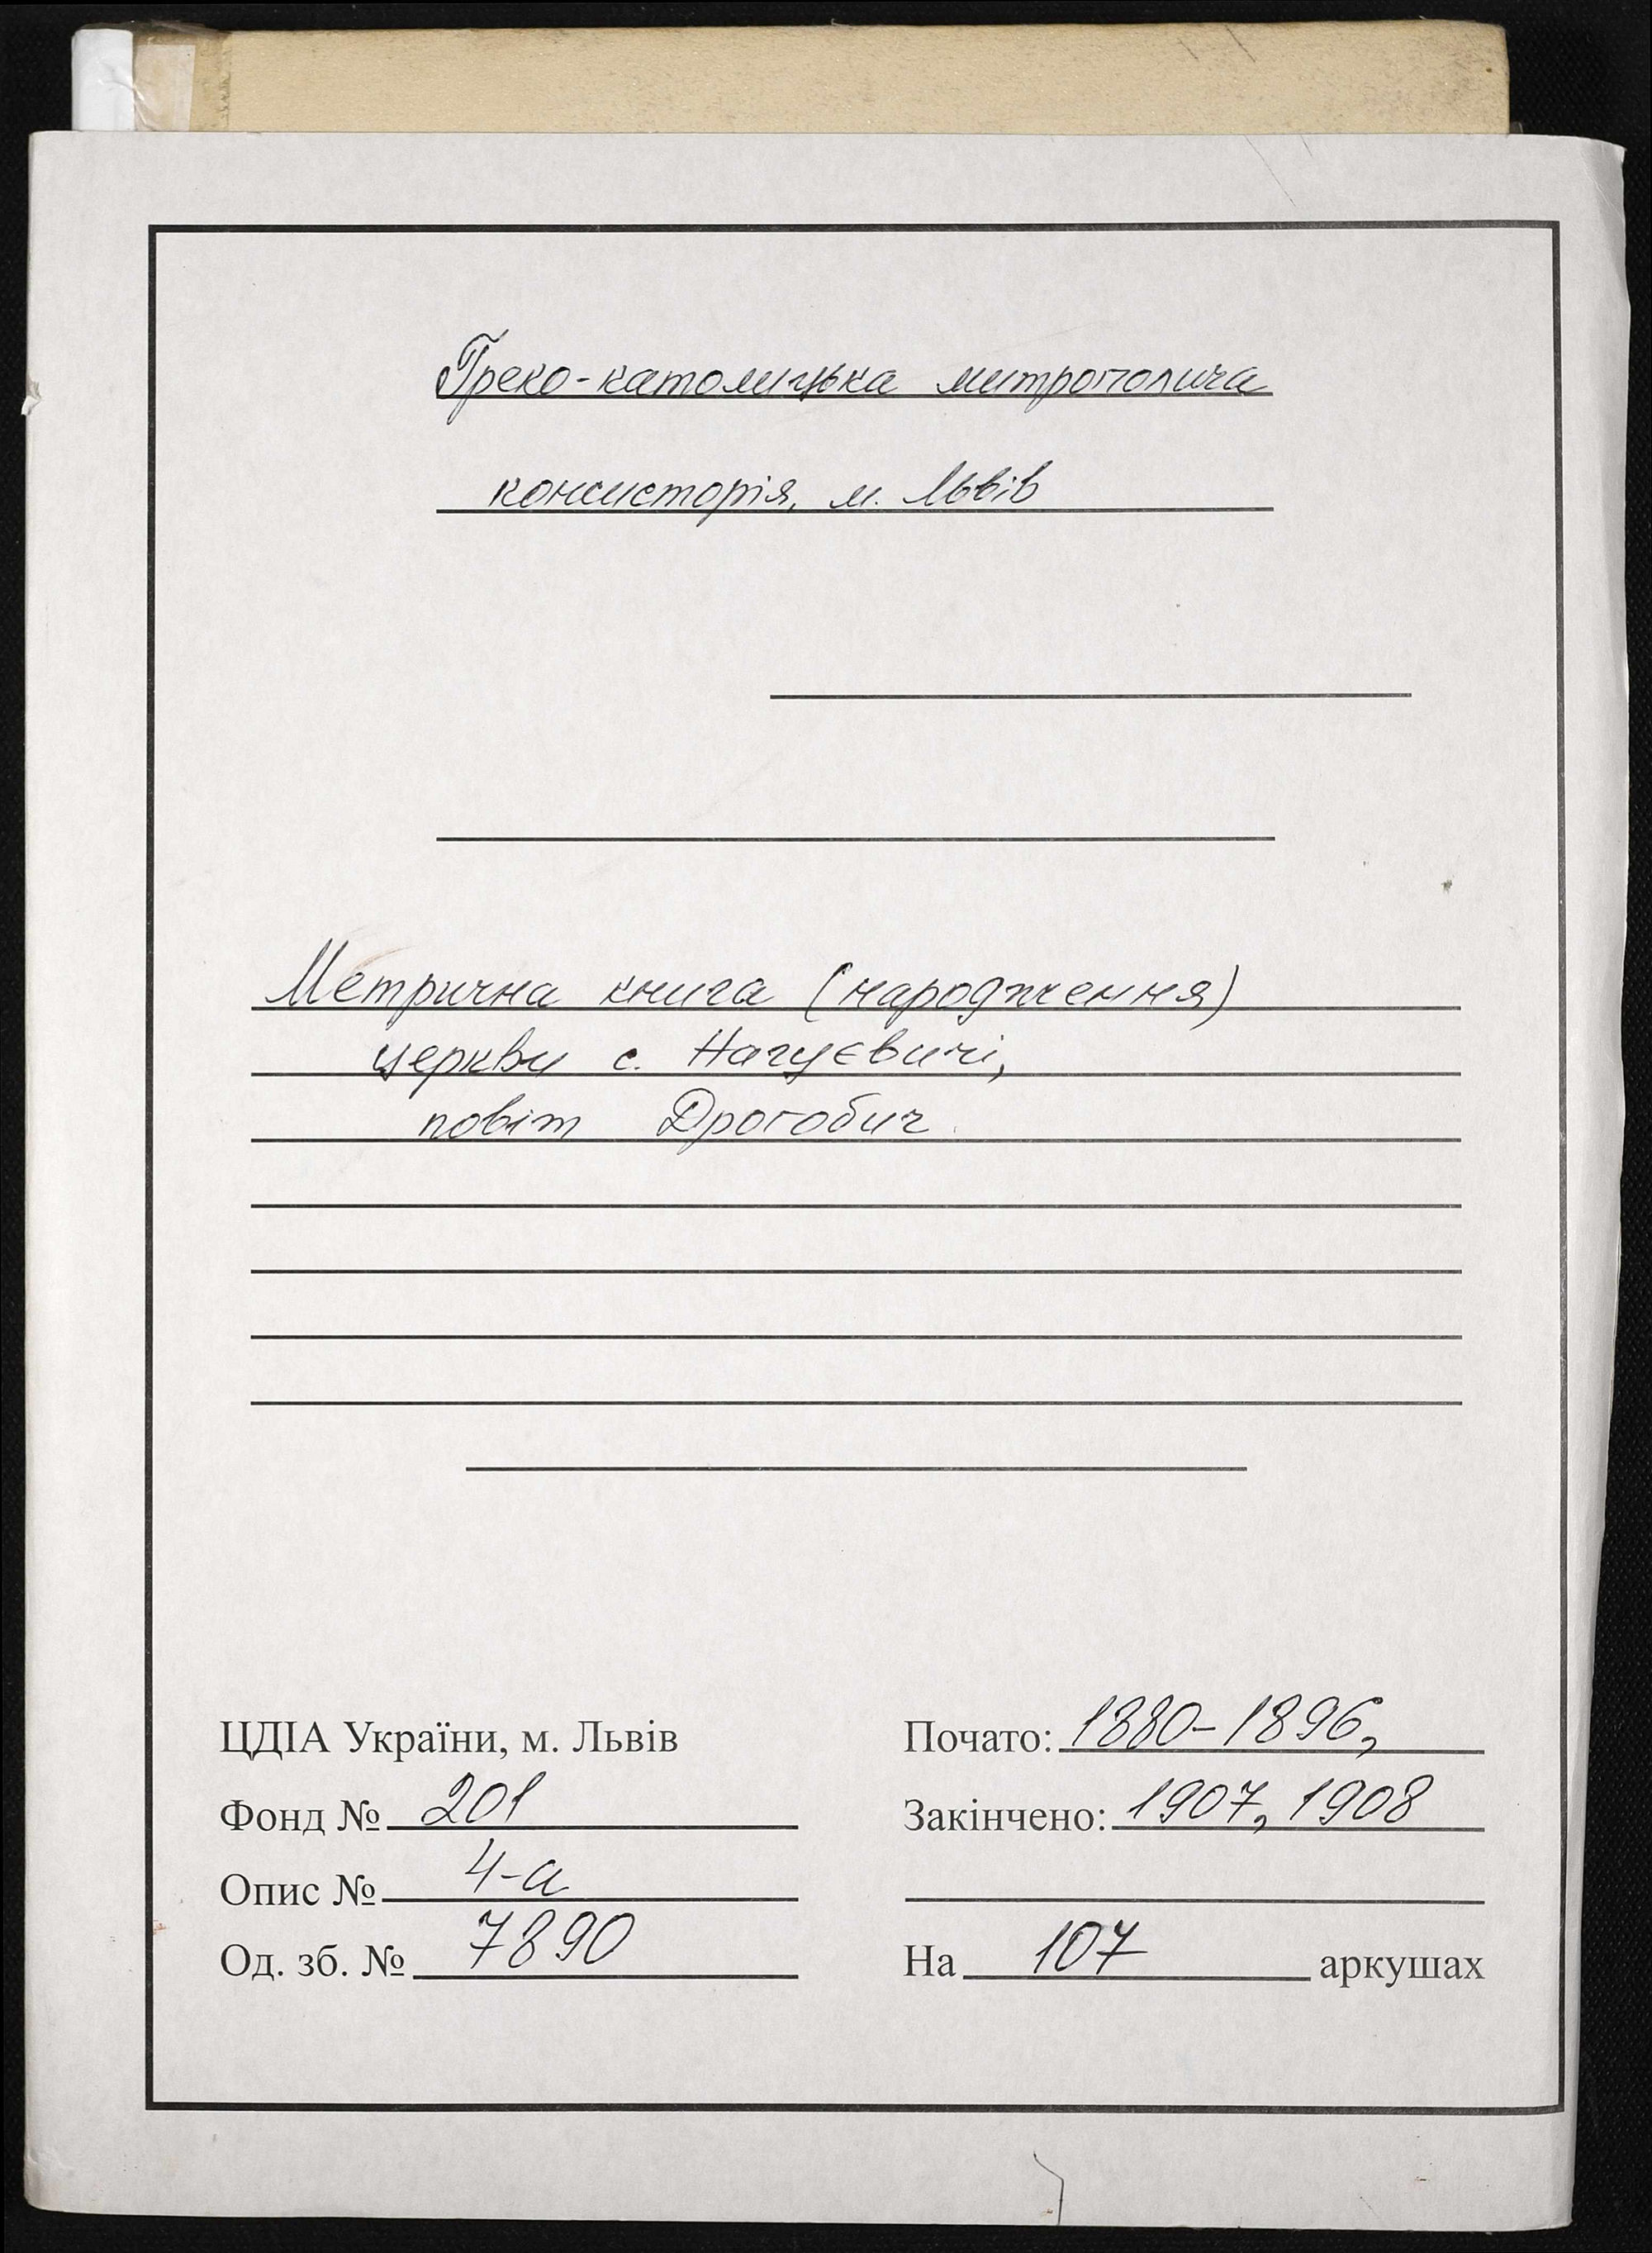 Греко-католицька митрополича
консисторія, м. Львів
Метрична книга (народження)
церкви с. Нагуєвичі,
повіт Дрогобич.
ЦДІА України, м. Львів
Фонд № 201
Опис № 4-а
Од. зб. № 7890
Почато: 1880-1896,
Закінчено: 1907, 1908
На 107 аркушах